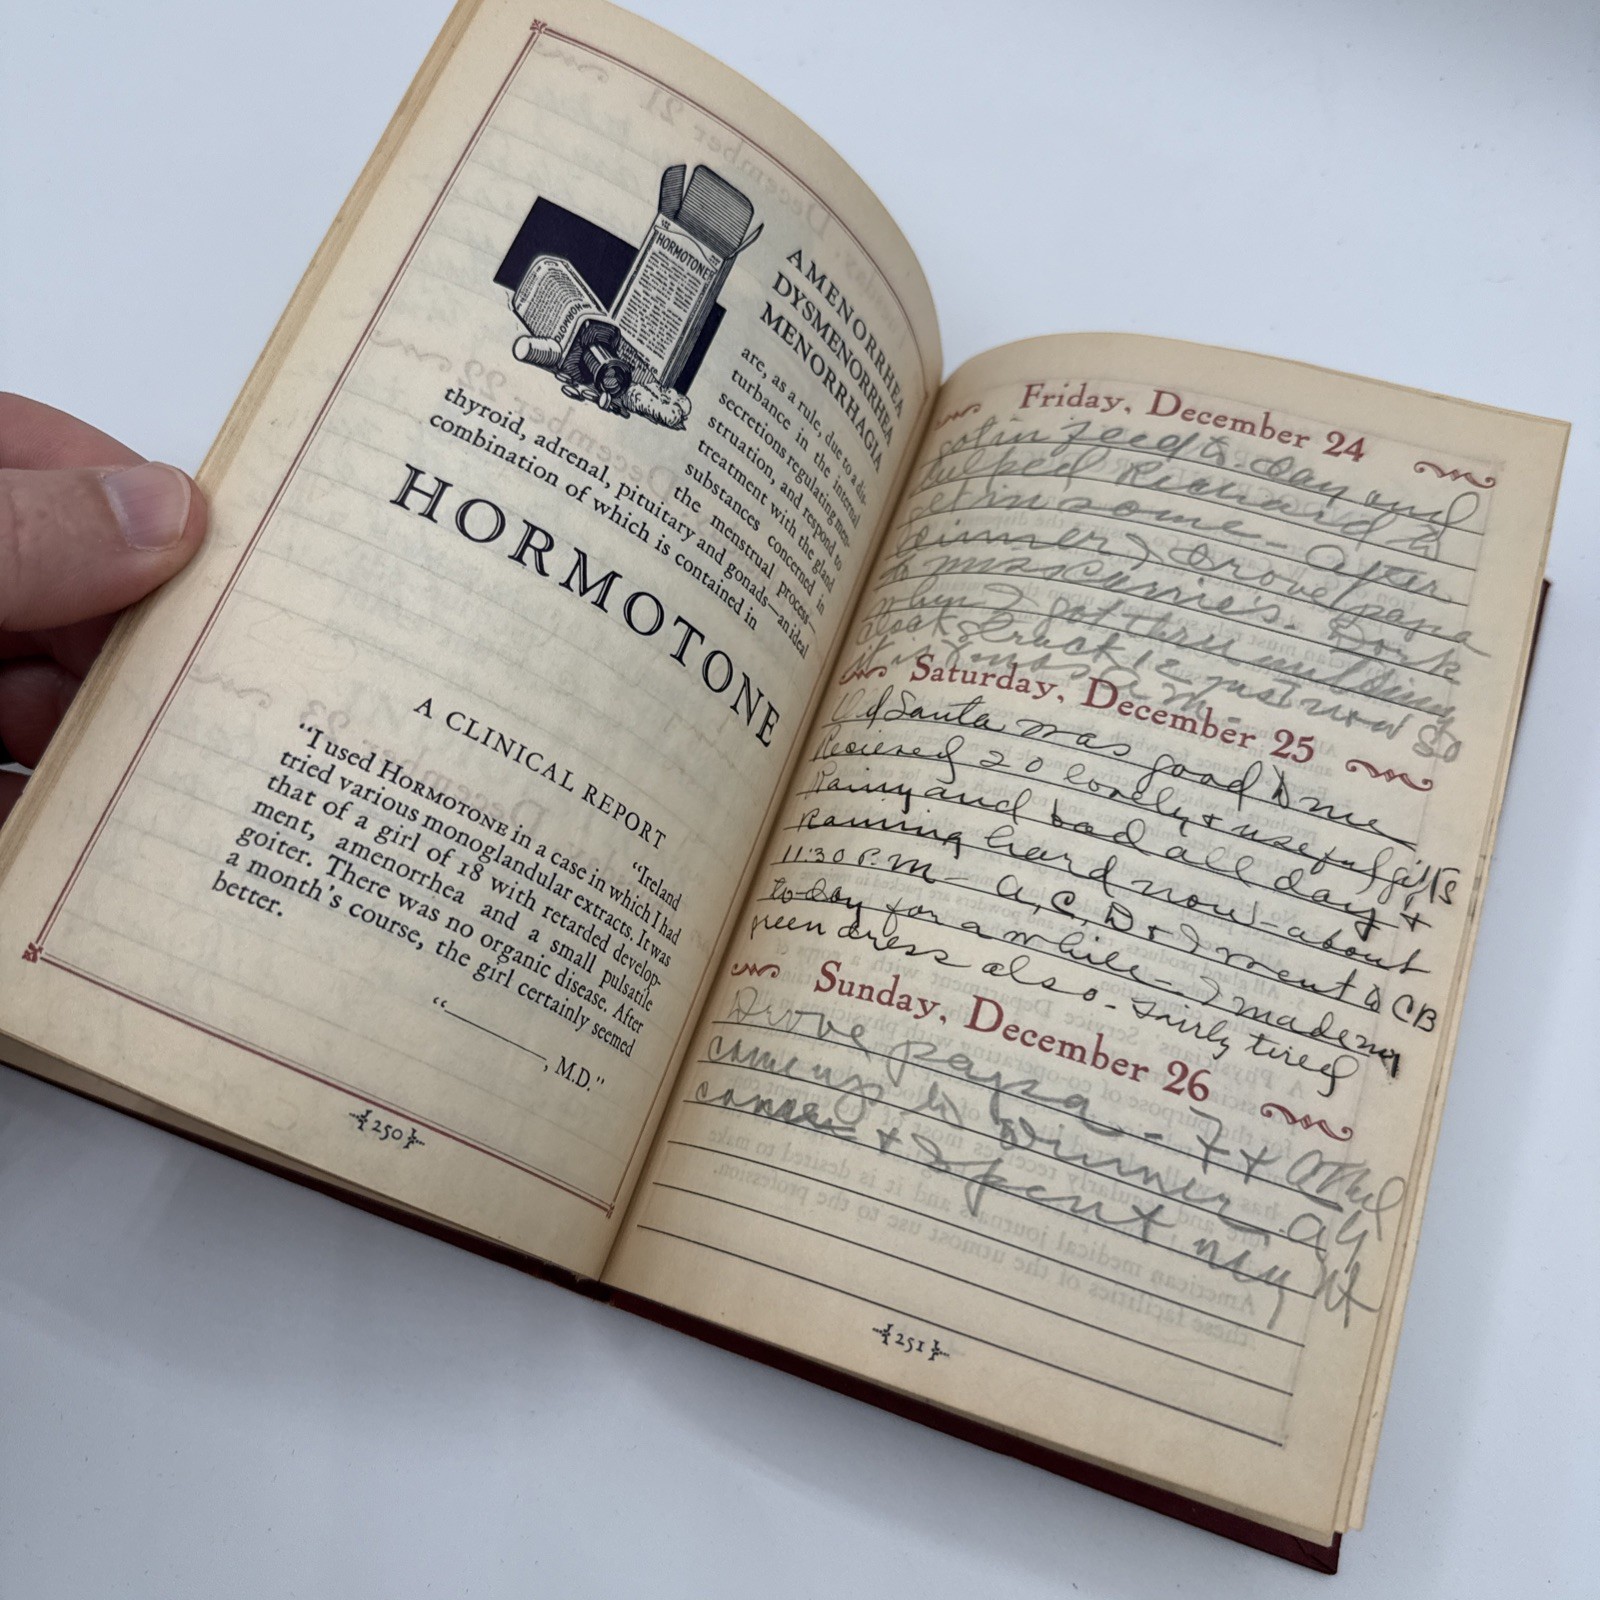 HORMOTONE
AMENORRHEA
DYSMENORRHEA
MENORRHAGIA
are, as a rule, due to a dis-
turbance in the internal
secretions regulating men-
struation, and respond to
treatment with the gland
substances concerned in
the menstrual process—
thyroid, adrenal, pituitary and gonads—an ideal
combination of which is contained in
HORMOTONE
A CLINICAL REPORT
"Ireland
"I used HORMOTONE in a case in which I had
tried various monoglandular extracts. It was
that of a girl of 18 with retarded develop-
ment, amenorrhea and a small pulsatile
goiter. There was no organic disease. After
a month's course, the girl certainly seemed
better.
"————, M.D."
250
Friday, December 24
got in feed to-day and
helped Richard to
get in some - After
dinner I drove papa
to miss Carrie's. Dork
when I got thru milking
clock struck 12 just now so
it is Xmas A.M.
Saturday, December 25
Old Santa was good to me
Recieved 20 lovely & useful gifts
Rainy and bad all day &
raining hard now - about
11:30 P.M - A, C, D & I went to CB
to-day for a while - I made my
green dress also - Fairly tired
Sunday, December 26
Drove papa - F & Ethel
came up to dinner. Aly
came & spent night
251